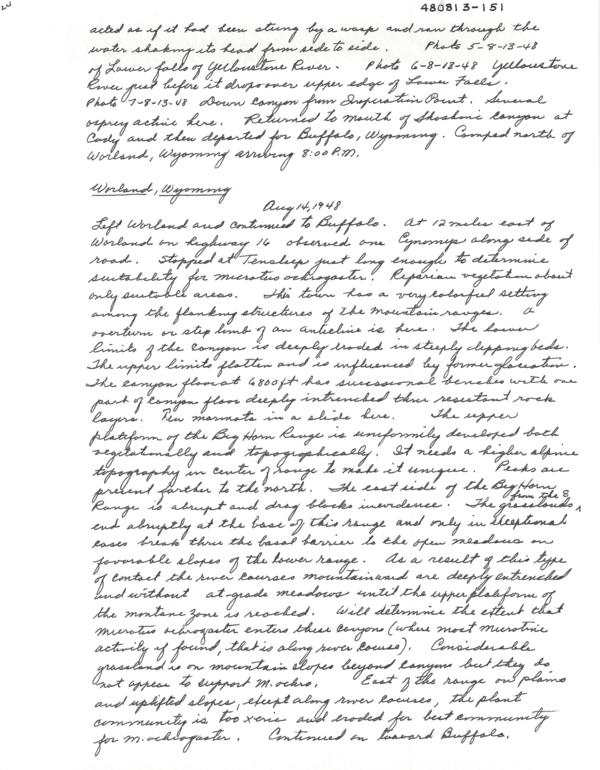 480813-151
acted as if it had been stung by a wasp and ran through the
water shaking its head from side to side. Photo 5-8-13-48
of Lower falls of Yellowstone River. Photo 6-8-13-48 Yellowstone
River just before it drops over upper edge of Lower Falls.
Photo 7-8-13-48 Down Canyon from Inspiration Point. Several
osprey active here. Returned to mouth of Shoshoni Canyon at
Cody and then departed for Buffalo, Wyoming. Camped north of
Worland, Wyoming arriving 8:00 P.M.
Worland, Wyoming
Aug 14, 1948
Left Worland and continued to Buffalo. At 12 miles east of
Worland on highway 16 observed one Cynomys along side of
road. Stopped at Tensleep just long enough to determine
suitability for microtus ochrogaster. Reparian vegetation about
only suitable areas. This town has a very colorful setting
among the flanking structures of the mountain ranges. A
overturn or step limb of an anticline is here. The lower
limits of the canyon is deeply eroded in steeply dipping beds.
The upper limits flatten and is influenced by former glaceation.
The canyon floor at 6800 ft has successional benches with one
part of canyon floor deeply intrenched thru resistant rock
layers. Few marmots in a slide here. The upper
plateform of the Big Horn Range is uniformily developed both
vegetationally and topographically. It needs a higher alpine
topography in center of range to make it unique. Peaks are
present farther to the north. The east side of the Big Horn
Range is abrupt and drag blocks in evidence. The grasslands from the E
end abruptly at the base of this range and only in exceptional
cases break thru the basal barrier to the open meadows on
favorable slopes of the lower range. As a result of this type
of contact the river courses mountainward are deeply entrenched
and without at-grade meadows until the upper plateform of
the montane zone is reached. Will determine the extent that
microtus ochrogaster enters these canyons (where most microtine
activity if found, that is along river course). Considerable
grassland is on mountain slopes beyond canyons but they do
not appear to support M. ochro. East of the range on plains
and uplifted slopes, except along river courses, the plant
community is too xeric and eroded for best community
for m. ochrogaster. Continued on toward Buffalo.